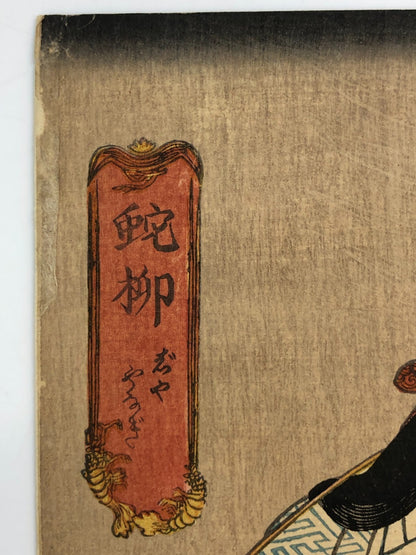 蛇柳
じや
やなぎ